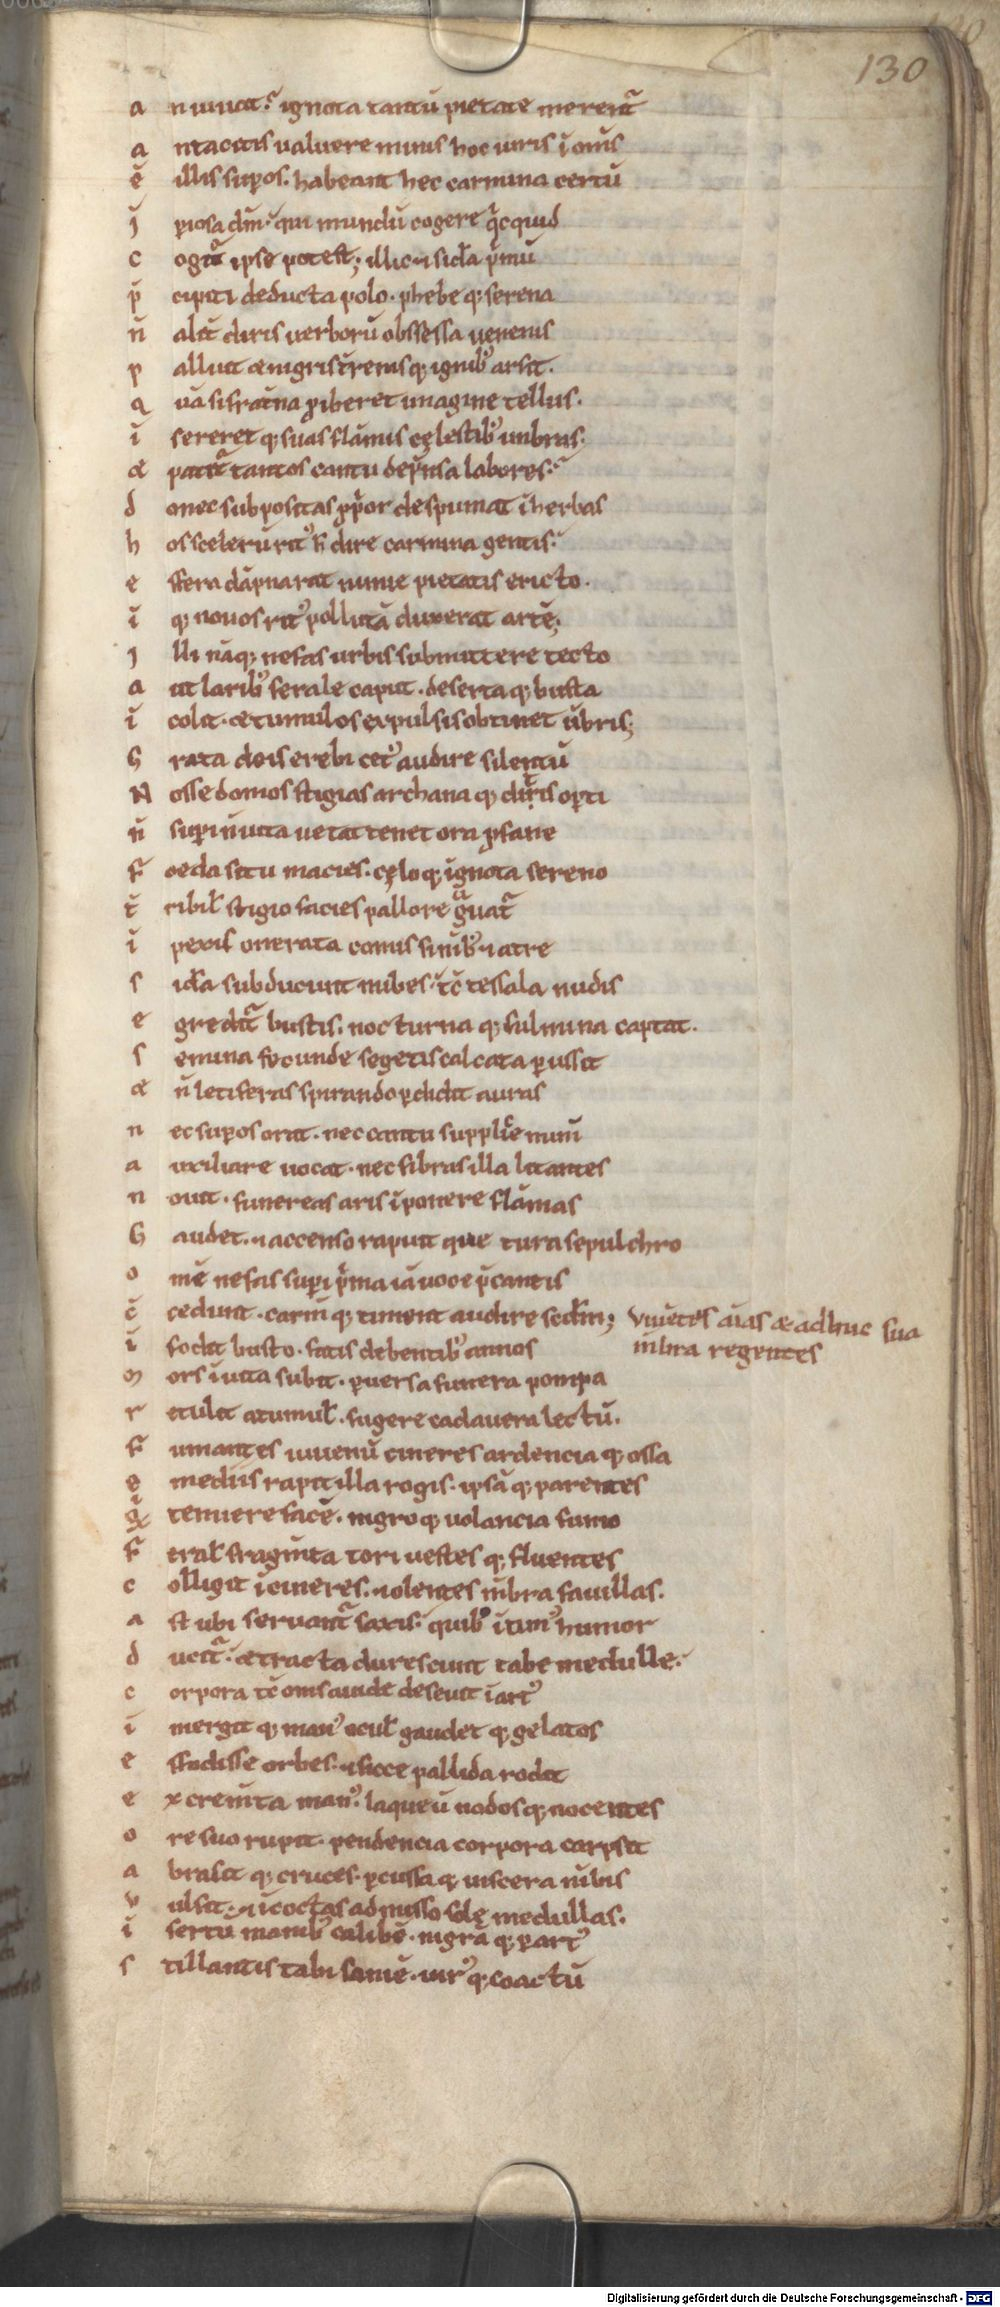 130
a n iuuat᷑. ignota tantū pietate merent᷑
a ntacitis ualuere minis hoc iuris ī om̄s
ē illis suꝑos. habeant hec carmina certū
j̄ ꝑiosa dm̄. qui mundū cogere q̇cquid
c ogit᷑ ipse potest; illic ⁊ sid̄a p̍mū
p̄ cipiti deducta polo. phebe q; serena
n̄ alit̄ diris uerborū obssessa uenenis
p alluit æ nigris t̄renis q; ignib᷒ arsit.
q uā si frat̄na ꝓiberet imagine tellus.
ī sereret q; suas flāmis cęlestib᷒ umbras.
æ patit᷑ tantos cantu dep̄nsa labores.
d onec subpositas ꝓp̍or despumat ī herbas
h os scelerū rit᷒ h̄ dire carmina gentis.
e ffera dāpnarat nimie pietatis ericto.
ī q; nouos rit᷒ pollutā duxerat artē;
j lli nāq; nefas urbis submittere tecto
a ut larib᷒ ferale caput. deserta q; busta
ī colit. æ tumulos expulsis obtinet ūbris;
G rata deis erebi cet᷒ audire silentū
N osse domos stigias archana q; ditis oꝑti
n̄ suꝑi n̄ uita uetat tenet ora ꝓfane
f᷑ oeda situ macies. cęlo q; ignota sereno
t̄ ribil̄ stigio facies pallore g̊uat᷑
ī pexis onerata comis si nīb᷒ ⁊ atre
s id̄a subducunt nubes. tc̄ tessala nudis
e gredit᷑ bustis. nocturna q; fulmina captat.
s emina fecunde segetis calcata ꝑussit
æ n̄ letiferas spirando ꝑdidit auras
n ec suꝑos orat. nec cantu supplice num̄
a uxiliare uocat. nec fibras illa litantes
n ouit. funereas aris īponere flāmas
G audet. ⁊ accenso rapuit que tura sepulchro
o mē nefas suꝑi p̍ma iā uoce p̄cantis
c̄ cedunt. carm̄ q; timent audire scd̄m; Viuētes aīas æ adhuc sua
ī fodit busto. fatis debentib᷒ annos mbra regentes
m ors īuita subit. ꝑuersa funera pompa
r etulit a tumul̄. fugere cadauera lectū.
f᷑ umantes iuuenū cineres ardencia q; ossa
e mediis rapit illa rogis. ipsā q; parentes
q̄ tenuere facē. nigro q; uolancia fumo
f᷑ eral̄ fragm̄ta tori uestes q; fluentes
c olligit ī cineres. ⁊ olentes mbra fauillas.
a st ubi seruant᷑ saxis. quib᷒ ītim᷒ humor
d ucit᷑. æ tracta durescunt tabe medulle.
c orpora tc̄ om̄s auide deseuit ī art᷒
ī mergit q; man᷒ ocul̄ gaudet q; gelatos
e ffodisse orbes. ⁊ sicce pallida rodit
e xcrem̄ta man᷒. laqueū nodos q; nocentes
o re suo rupit. pendencia corpora carpsit
a brasit q; cruces. ꝑcussa q; uiscera nībis
v ulsit. ⁊ īcoctas admisso solę medullas.
ī sertū manib᷒ calibē. nigrā q; ꝑ art᷒
s tillantis tabi saniē. uir᷒ q; coactū
Digitalisierung gefördert durch die Deutsche Forschungsgemeinschaft - DFG